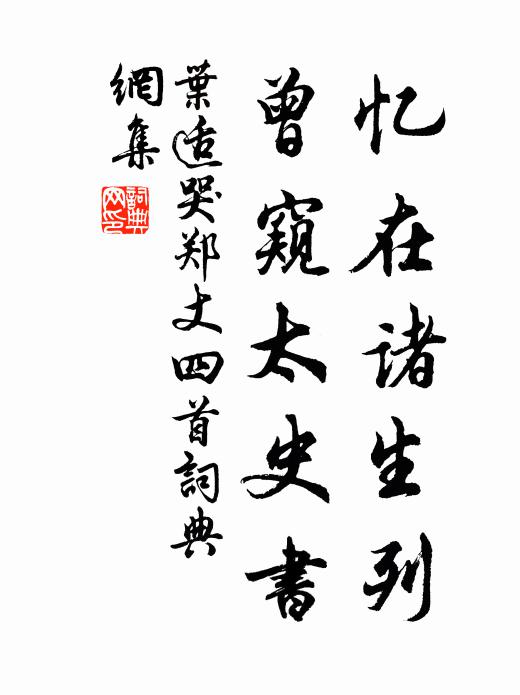 忆在诸生列
曾窥太史書
葉适哭郑丈四首詞典
網集
詞典网印